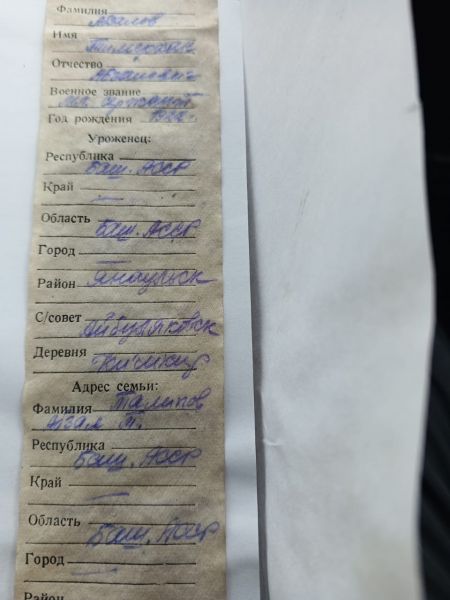 Фамилия Авалов
Имя
Отчество
Военное звание
мл. сержант
Год рождения 1922 г.
Уроженец:
Республика
Баш. АССР
Край —
Область
Баш. АССР
Город —
Район Янаульск
С/совет
Деревня
Адрес семьи:
Фамилия Талипов
Республика
Баш. АССР
Край
—
Область
Баш. АССР
Город
—
Район